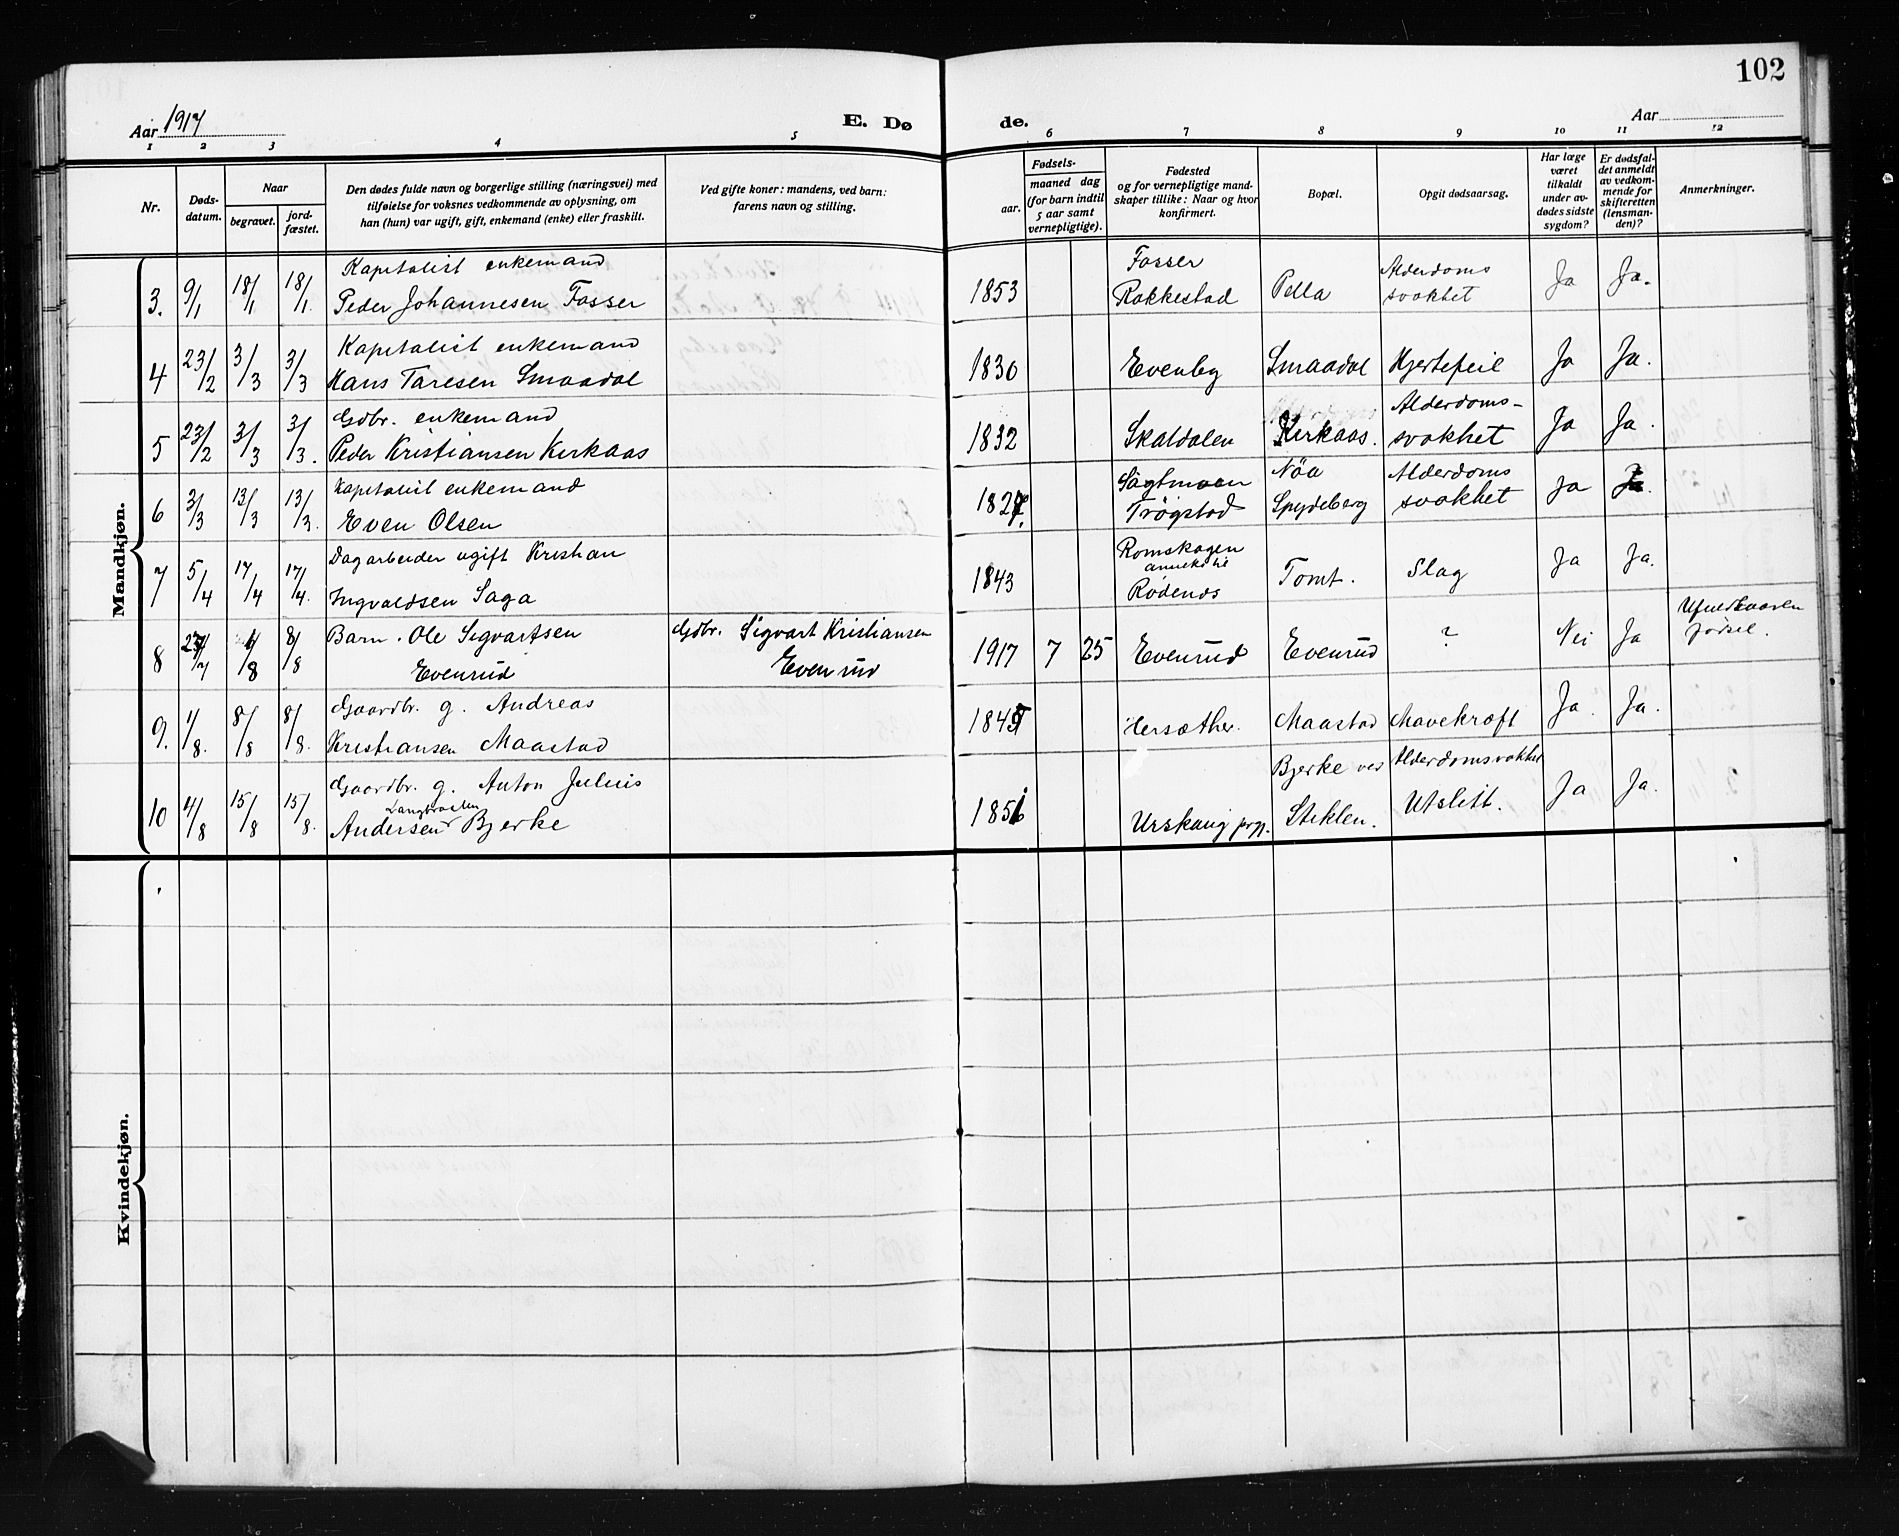 102
Aar 1917
E. Dø
de.
Aar
1 2 3 4 5 6 7 8 9 10 11 12
Nr.
Døds-
datum.
Naar
begravet.
jord-
fæstet.
Den dødes fulde navn og borgerlige stilling (næringsvei) med
tilføielse for voksnes vedkommende av oplysning, om
han (hun) var ugift, gift, enkemand (enke) eller fraskilt.
Ved gifte koner: mandens, ved barn:
farens navn og stilling.
Fødsels-
aar.
maaned dag
(for barn indtil
5 aar samt
vernepligtige).
Fødested
og for vernepligtige mand-
skaper tillike: Naar og hvor
konfirmert.
Bopæl.
Opgit dødsaarsag.
Har læge
været
tilkaldt
under av-
dødes sidste
sygdom?
Er dødsfal-
det anmeldt
av vedkom-
mende for
skifteretten
(lensman-
den)?
Anmerkninger.
Mandkjøn.
3. 9/1 18/1 18/1. Kapitalist enkemand
Peder Johannesen Fosser
1853 Fosser
Rakkestad
Pella
Alderdoms
svakhet
Ja Ja.
4 23/2 3/3 3/3 Kapitalist enkemand
Hans Taresen Smaadal
1830 Evenby Smaadal Hjertefeil Ja Ja.
5 23/2 3/3 3/3. Gdbr. enkemand
Peder Kristiansen Kirkaas
1832 Skaldalen Kirkaas.
Alderdoms-
svakhet
Ja Ja.
6 3/3 13/3 13/3. Kapitalist enkemand
Even Olsen
Trøgstad
Nøa
Spydeberg
Alderdoms
svakhet
Ja Ja.
7 5/4 17/4 17/4. Dagarbeider ugift Kristian
Ingvaldsen Saga
1843 Romskogen
anneks til
Rødenes
Tomt. Slag Ja Ja.
8 8/8 Barn. Ole Sigvartsen
Evenrud
Gdbr. Sigvart Kristiansen
Evenrud
1917 7 25 Evenrud Evenrud ? Nei Ja
Ufuldbaaren
fødsel.
9. 1/8. 8/8 8/8. Gaardbr. g. Andreas
Kristiansen Maastad
Hersæther. Maastad Mavekræft Ja Ja.
10 4/8 15/8 15/8. Gaardbr. g. Anton Julius
Langbraaten
Andersen Bjerke
Urskaug prgj.
Bjerke ved
Stiklen.
Alderdomsvakhet
Utslitt.
Ja Ja.
Kvindekjøn.